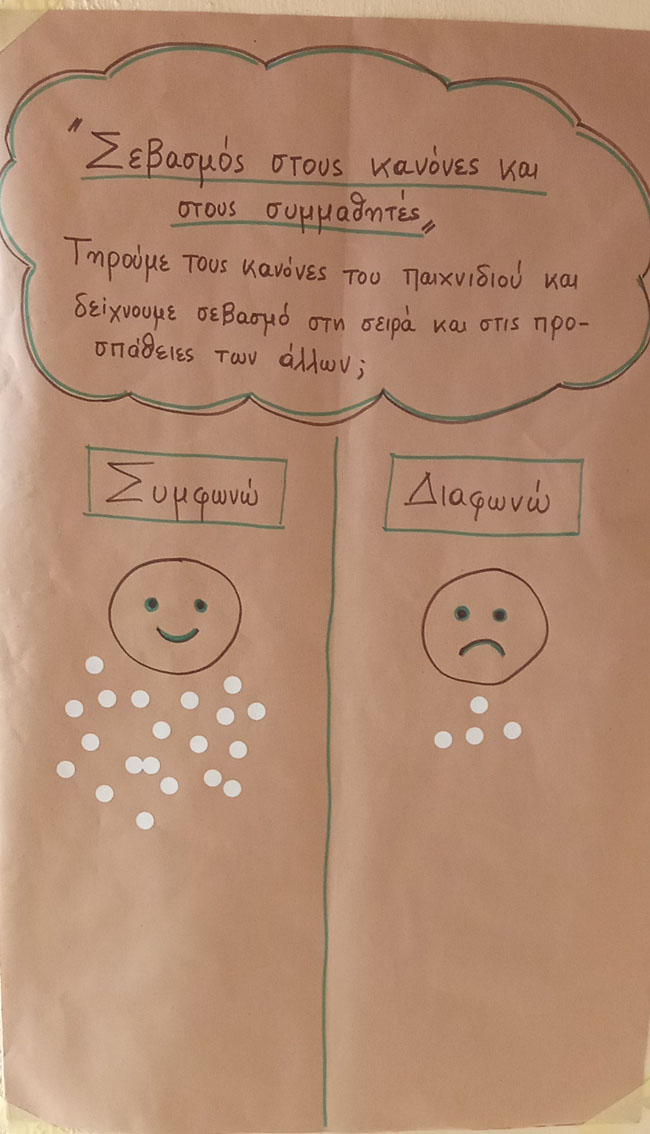 "Σεβασμός στους κανόνες και
στους συμμαθητές"
Τηρούμε τους κανόνες του παιχνιδιού και
δείχνουμε σεβασμό στη σειρά και στις προ-
σπάθειες των άλλων;
Συμφωνώ
Διαφωνώ